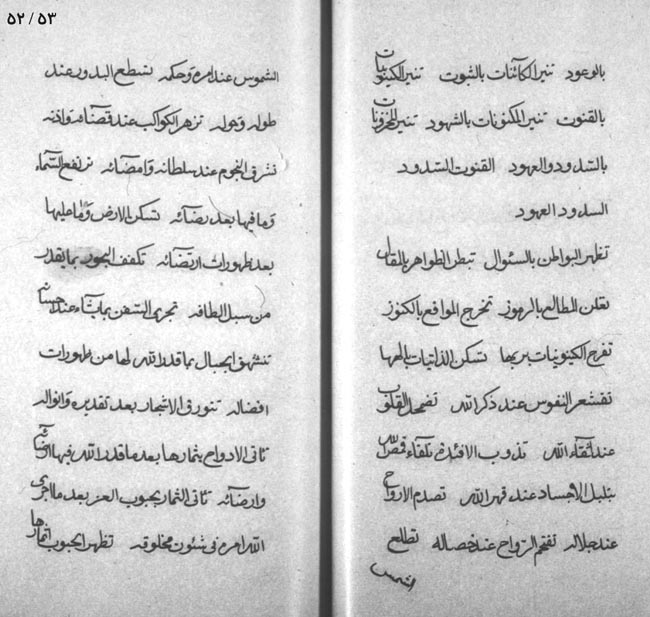 ٥٢ / ٥٣
بالوعود تنير الكائنات بالثبوت تنير الكينونيات
بالقنوت تنير المكنونات بالشهود تنير المخزونات
بالسدود والعهود القنوت السدود
السدود العهود
تظهر البواطن بالسئوال تبطن الظواهر بالمقال
تعلن المطالع بالرموز تخرج المواقع بالكنوز
تفرح الكينونيات بربها تسكن الذاتيات بالهها
تقشعر النفوس عند ذكر الله تضمحل القلوب
عند لقآء الله تذوب الافئدة تلقآء قمص الله
الاجساد عند قهر الله تصدم الارواح
عند جلاله الرواح عند خصاله تطلع
الشمس
الشموس عند امره وحكمه تسطع البدور عند
طوله وحوله تزهر الكواكب عند قضائه واذنه
تشرق النجوم عند سلطانه وامضائه ترتفع السمآء
وما فيها بعد رضائه تسكن الارض وما عليها
بعد ظهورات ارتضائه تكفف البحور بما يقدر
من سبل الطافه تجرى السفن بما يشآء عند
تنشهق الجبال بما قدر الله لها من ظهورات
افضاله تورق الاشجار بعد تقديره وانواله
تاتى الادواح بثمارها بعد ما قدر الله فيها
وارضائه تاتى الثمار بحبوب العز بعد ما اجرى
الله امره فى شئون مخلوقه تظهر الحبوب اثمارها